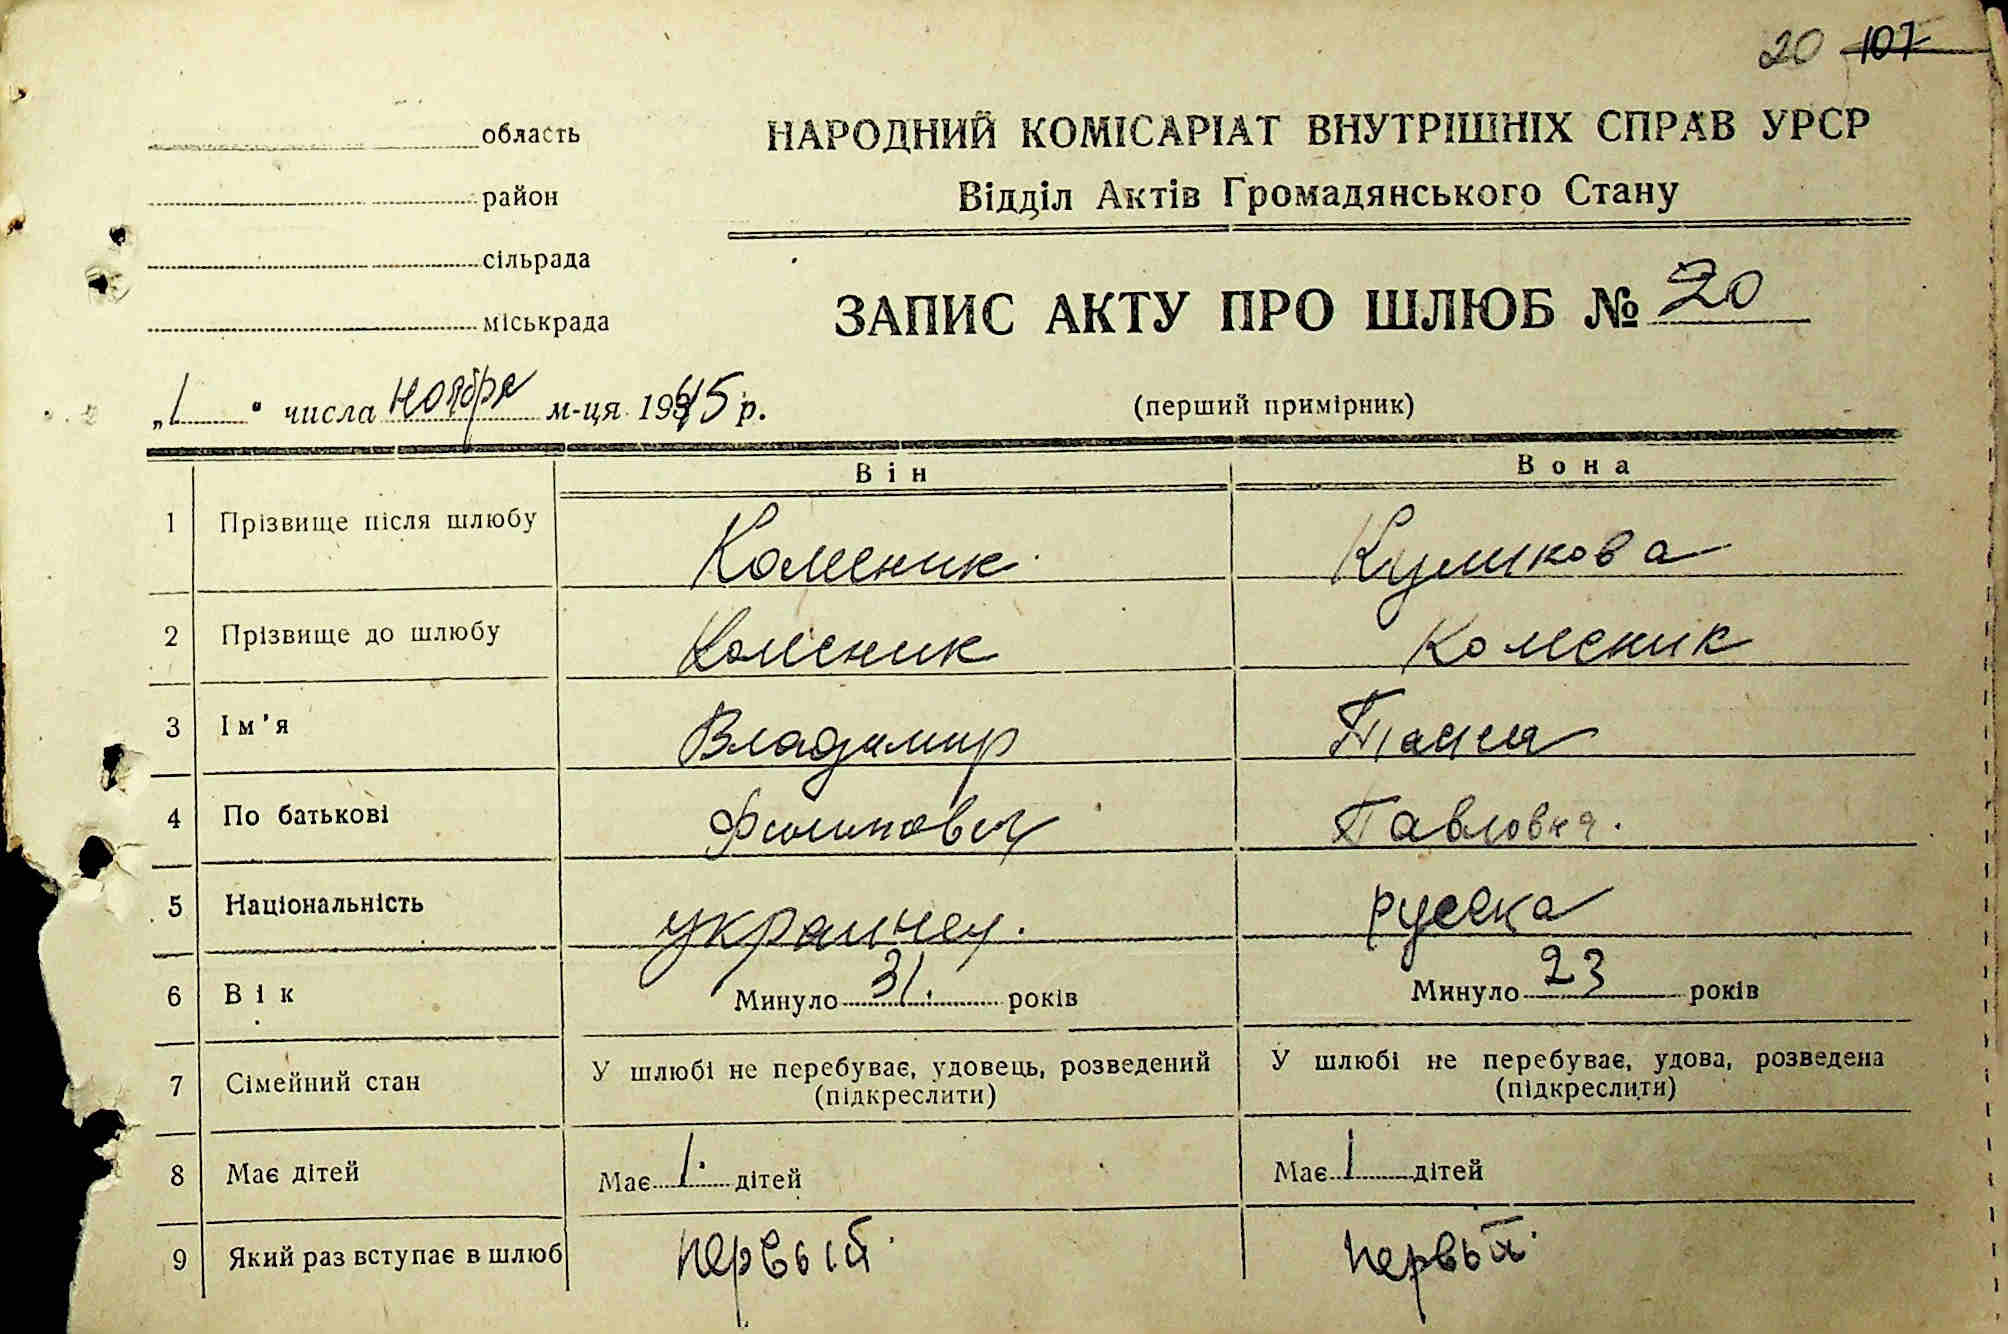 20 107
область
район
сільрада
міськрада
НАРОДНИЙ КОМІСАРІАТ ВНУТРІШНІХ СПРАВ УРСР
Відділ Актів Громадянського Стану
ЗАПИС АКТУ ПРО ШЛЮБ № 20
„1" числа ноября м-ця 1945 р.
(перший примірник)
Він Вона
1 Прізвище після шлюбу Колесник Куликова
2 Прізвище до шлюбу Колесник Колесник
3 Ім'я Владимир
4 По батькові Филипович Павловна.
5 Національність украинец. русска
6 Вік Минуло 31. років Минуло 23 років
7 Сімейний стан У шлюбі не перебуває, удовець, розведений У шлюбі не перебуває, удова, розведена
(підкреслити) (підкреслити)
8 Має дітей Має 1. дітей Має 1 дітей
9 Який раз вступає в шлюб первый. первый.